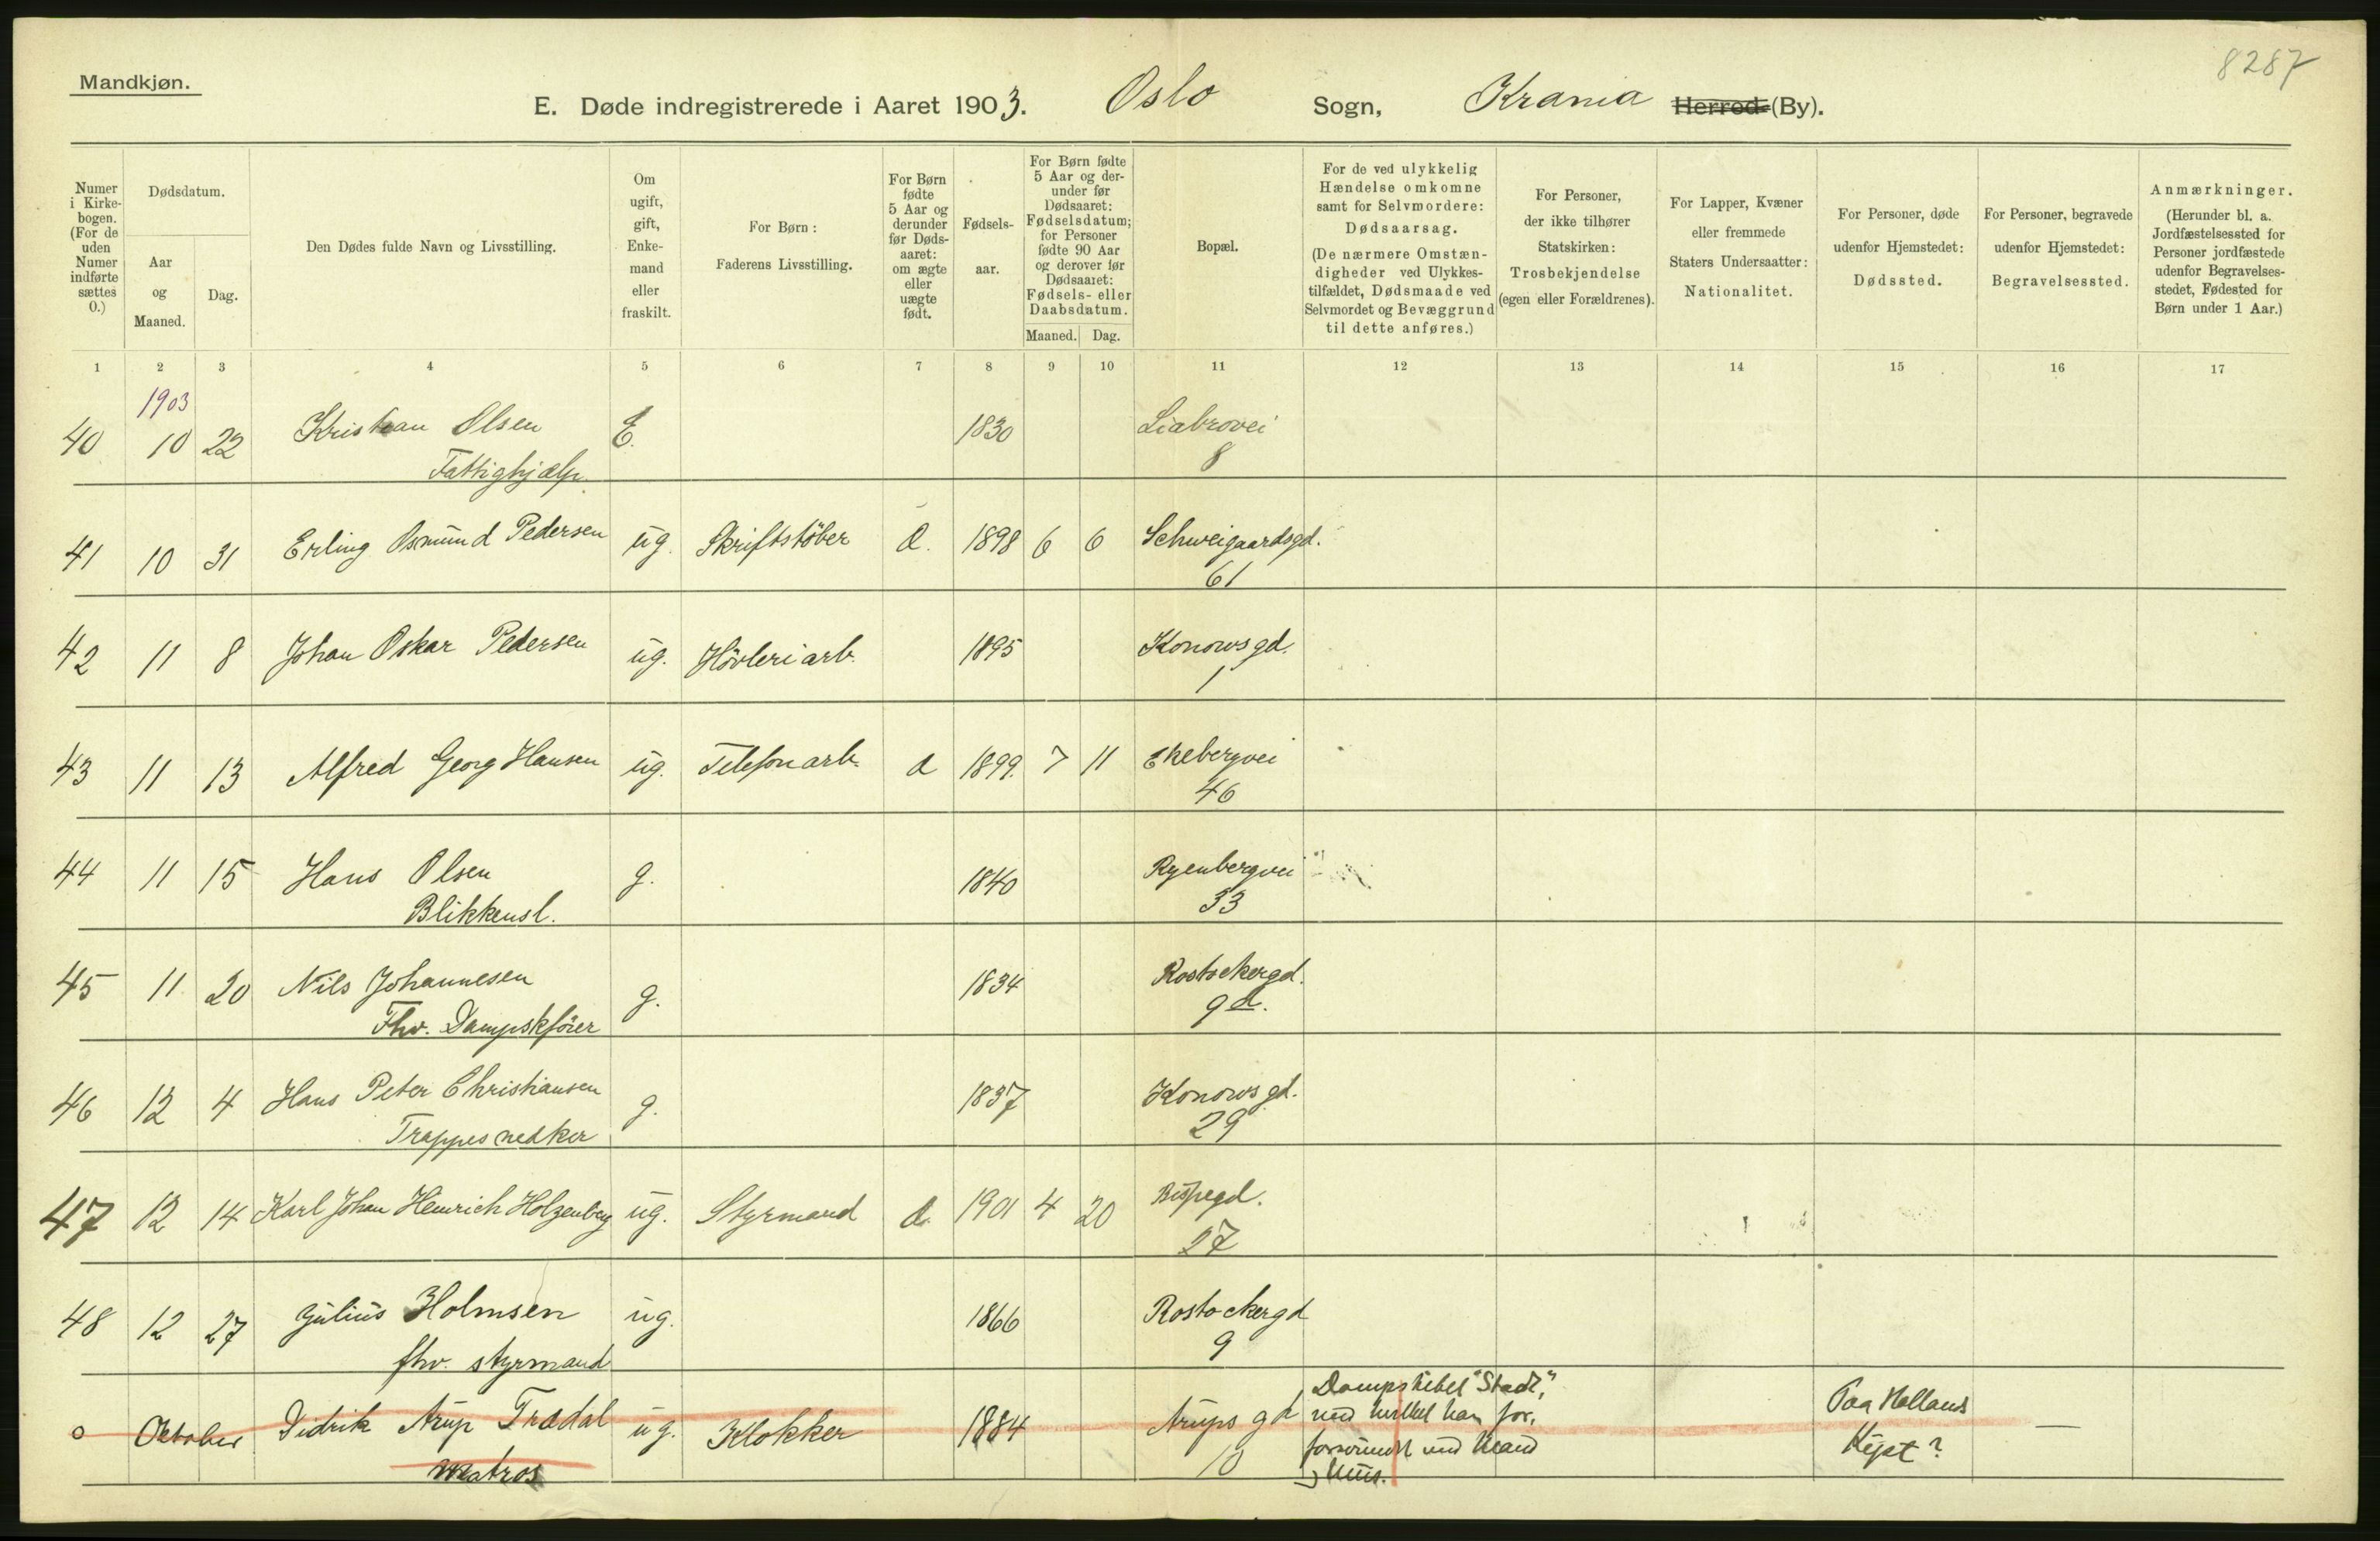 8287
Mandkjøn.
E. Døde indregistrerede i Aaret 1903. Oslo Sogn, Krania Herred (By).
Numer i Kirke-bogen. (For de uden Numer indførte sættes 0.)
Dødsdatum.
Aar og Maaned.
Dag.
Den Dødes fulde Navn og Livsstilling.
Om ugift, gift, Enke-mand eller fraskilt.
For Børn: Faderens Livsstilling.
For Børn fødte 5 Aar og derunder før Døds-aaret: om ægte eller uægte født.
Fødsels-aar.
For Børn fødte 5 Aar og der-under før Dødsaaret: Fødselsdatum; for Personer fødte 90 Aar og derover før Dødsaaret: Fødsels- eller Daabsdatum.
Maaned. Dag.
Bopæl.
For de ved ulykkelig Hændelse omkomne samt for Selvmordere: Dødsaarsag. (De nærmere Omstæn-digheder ved Ulykkes-tilfældet, Dødsmaade ved Selvmordet og Bevæggrund til dette anføres.)
For Personer, der ikke tilhører Statskirken: Trosbekjendelse (egen eller Forældrenes).
For Lapper, Kvæner eller fremmede Staters Undersaatter: Nationalitet.
For Personer, døde udenfor Hjemstedet: Dødssted.
For Personer, begravede udenfor Hjemstedet: Begravelsessted.
Anmærkninger. (Herunder bl. a. Jordfæstelsessted for Personer jordfæstede udenfor Begravelses-stedet, Fødested for Børn under 1 Aar.)
1 2 3 4 5 6 7 8 9 10 11 12 13 14 15 16 17
1903
40 10 22 Kristian Olsen E. 1830 Liabrovei
Fattighjælp. 8
41 10 31 Erling Osmund Pedersen ug. Skriftstöber 1898 6 6 Schweigaardsgd.
61
42 11 8 Johan Oskar Pedersen ug. Hövleriarb. 1895 Konowsgd.
1
43 11 13 Alfred Georg Hansen ug. Telefonarb. 1899. 7 11 Ekebergvei
46
44 11 15 Hans Olsen g. 1840 Ryenbergvei
Blikkensl. 33
45 11 20 Nils Johannesen g. 1834 Rostockergd.
Fhv. Dampskförer 9
46 12 4 Hans Peter Christiansen g. 1837 Konowsgd.
Trappesnedker 29
47 12 14 Karl Johan Henrich Holzenberg ug. Styrmand 1901 4 20 Bispegd.
27
48 12 27 Julius Holmsen ug. 1866 Rostockergd
fhv. styrmand 9
0 Oktober Didrik Arup Trædal ug. Klokker 1884 Arups gd 10 —
Matros
Dampskibet "Stadt",
med hvilket han
forsvundet med Mand
Mus.
Paa Hollands
Kyst?